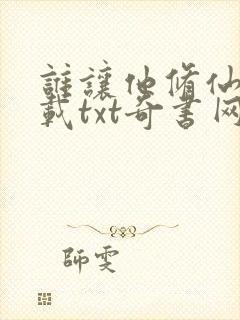 誰讓他脩仙
載txt奇書网
師雯